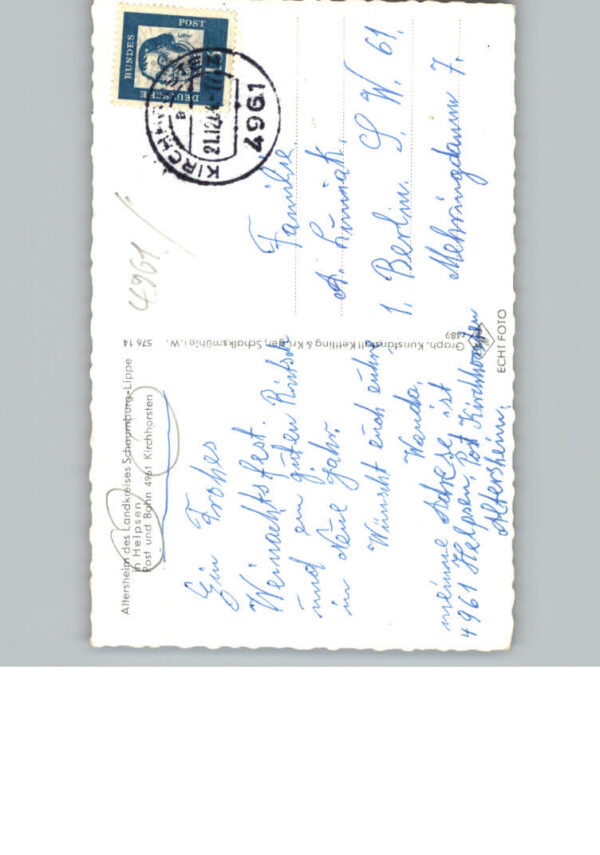 Altersheim des Landkreises Schaumburg-Lippe
in Helpsen
Post und Bahn 4961 Kirchhorsten
Ein Frohes
Weinachtsfest.
und ein guten Rütsch
in Neue Jahr.
Wünscht euch eühre
Wanda.
meinne Adrese ist
4961 Helpsen, Post Kirchhorsten
Altersheim.
Graph. Kunstanstalt Kettling & Krüger, Schalksmühle i. W. 576 14
1489
ECHT FOTO
4961
DEUTSCHE
BUNDES
POST
KIRCHH
21.12.64
4961
Familie
A.
1. Berlin. S. W. 61.
Mehringdamm 7.